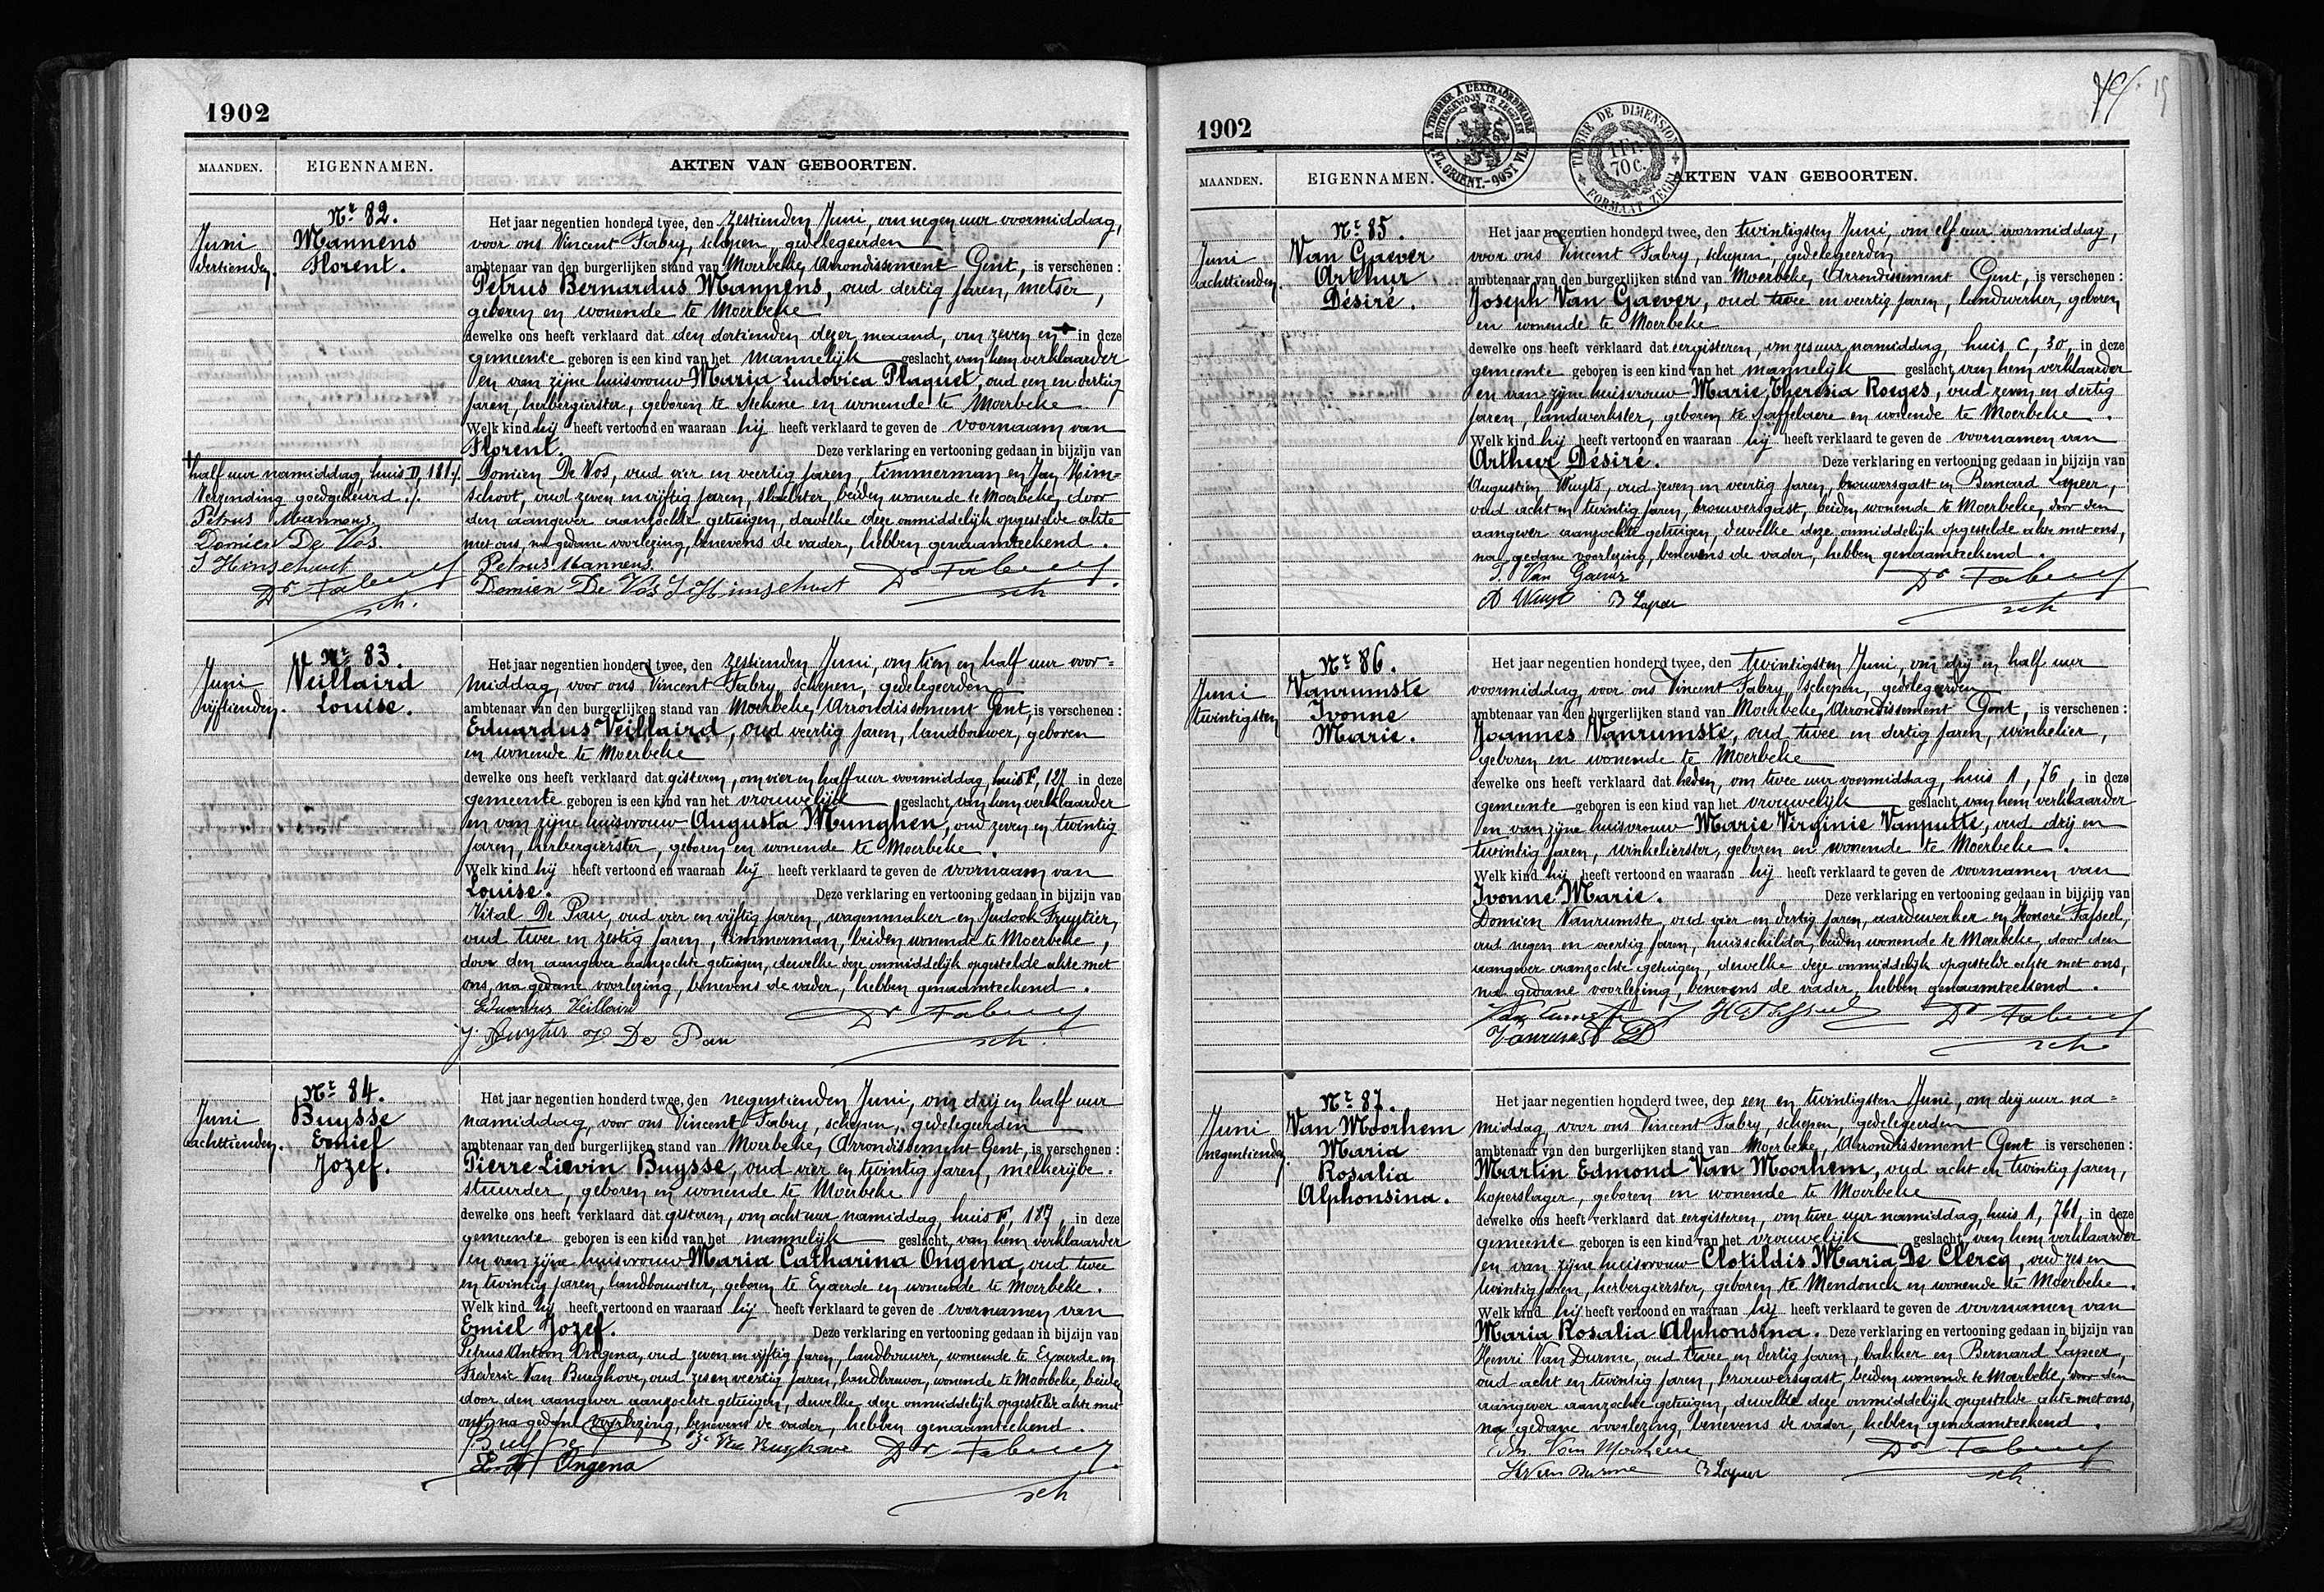 1902
MAANDEN. EIGENNAMEN. AKTEN VAN GEBOORTEN.
Nr 82.
Juni
dertienden.
Mannens
Florent.
Het jaar negentien honderd twee, den zestienden Juni, om negen uur voormiddag,
voor ons Vincent Fabry, schepen, gedelegeerden
ambtenaar van den burgerlijken stand van Moerbeke, Arrondissement Gent, is verschenen :
Petrus Bernardus Mannens, oud dertig jaren, metser,
geboren en wonende te Moerbeke
dewelke ons heeft verklaard dat den dertienden dezer maand, om zeven en + in deze
gemeente geboren is een kind van het mannelijk geslacht, van hem verklaarder
en van zijne huisvrouw Maria Ludovica Plaquet, oud een en dertig
jaren, herbergierster, geboren te Stekene en wonende te Moerbeke.
Welk kind hij heeft vertoond en waaraan hij heeft verklaard te geven de voornaam van
Florent. Deze verklaring en vertooning gedaan in bijzijn van
Domien De Vos, oud vier en veertig jaren, timmerman en Jan Him=
schoot, oud zeven en vijftig jaren, slachter, beiden wonende te Moerbeke, door
den aangever aanzochte getuigen, dewelke deze onmiddelijk opgestelde akte
met ons, na gedane voorlezing, benevens de vader, hebben genaamteekend.
+half uur namiddag, huis D, 181./.
Verzending goedgekeurd ./.
Petrus Mannens.
Domien De Vos.
J Himschoot
Dr Fabry
sch.
Petrus Mannens.
Domien De Vos J Himschoot Dr Fabry
sch
Nr 83.
Juni
vijftienden.
Veillaird
Louise.
Het jaar negentien honderd twee, den zestienden Juni, om tien en half uur voor=
middag, voor ons Vincent Fabry, schepen, gedelegeerden
ambtenaar van den burgerlijken stand van Moerbeke, Arrondissement Gent, is verschenen :
Eduardus Veillaird, oud veertig jaren, landbouwer, geboren
en wonende te Moerbeke
dewelke ons heeft verklaard dat gisteren, om vier en half uur voormiddag, huis F, 127 in deze
gemeente geboren is een kind van het vrouwelijk geslacht, van hem verklaarder
en van zijne huisvrouw Augusta Munghen, oud zeven en twintig
jaren, herbergierster, geboren en wonende te Moerbeke.
Welk kind hij heeft vertoond en waaraan hij heeft verklaard te geven de voornaam van
Louise. Deze verklaring en vertooning gedaan in bijzijn van
Vital De Pau, oud vier en vijftig jaren, wagenmaker en Judook Fruytier,
oud twee en zestig jaren, timmerman, beiden wonende te Moerbeke,
door den aangever aanzochte getuigen, dewelke deze onmiddelijk opgestelde akte met
ons, na gedane voorlezing, benevens de vader, hebben genaamteekend.
Eduardus Veillaird Dr Fabry
J Fruytier V De Pau sch.
Nr 84.
Juni
achttienden.
Buysse
Emiel
Jozef.
Het jaar negentien honderd twee, den negentienden Juni, om drij en half uur
namiddag, voor ons Vincent Fabry, schepen, gedelegeerden
ambtenaar van den burgerlijken stand van Moerbeke, Arrondissement Gent, is verschenen :
Pierre Lievin Buysse, oud vier en twintig jaren, melkerijbe=
stuurder, geboren en wonende te Moerbeke
dewelke ons heeft verklaard dat gisteren, om acht uur namiddag, huis F, 187, in deze
gemeente geboren is een kind van het mannelijk geslacht, van hem verklaarder
en van zijne huisvrouw Maria Catharina Ongena, oud twee
en twintig jaren, landbouwster, geboren te Exaerde en wonende te Moerbeke.
Welk kind hij heeft vertoond en waaraan hij heeft verklaard te geven de voornamen van
Emiel Jozef. Deze verklaring en vertooning gedaan in bijzijn van
Petrus Antoon Ongena, oud zeven en vijftig jaren, landbouwer, wonende te Exaerde en
Frederic Van Burghove, oud zes en veertig jaren, landbouwer, wonende te Moerbeke, beiden
door den aangever aanzochte getuigen, dewelke deze onmiddelijk opgestelde akte met
ons, na gedane voorlezing, benevens de vader, hebben genaamteekend.
Buysse Fr Van Burghove Dr Fabry
Ongena
sch
1902
A TIMBRER A L'EXTRAORDINAIRE
BUITENGEWOON TE ZEGELEN
FL. ORIENT.-OOST VL.
TIMBRE DE DIMENSION
1 Fr.
70 c.
FORMAAT ZEGEL
MAANDEN. EIGENNAMEN. AKTEN VAN GEBOORTEN.
Nr 85.
Juni
achttienden.
Van Gaever
Arthur
Désiré.
Het jaar negentien honderd twee, den twintigsten Juni, om elf uur voormiddag,
voor ons Vincent Fabry, schepen, gedelegeerden
ambtenaar van den burgerlijken stand van Moerbeke, Arrondissement Gent, is verschenen :
Joseph Van Gaever, oud twee en veertig jaren, landwerker, geboren
en wonende te Moerbeke
dewelke ons heeft verklaard dat eergisteren, om zes uur namiddag, huis C, 30, in deze
gemeente geboren is een kind van het mannelijk geslacht, van hem verklaarder
en van zijne huisvrouw Marie Theresia Roeges, oud zeven en dertig
jaren, landwerkster, geboren te Saffelaere en wonende te Moerbeke.
Welk kind hij heeft vertoond en waaraan hij heeft verklaard te geven de voornamen van
Arthur Désiré. Deze verklaring en vertooning gedaan in bijzijn van
Augustien Wuyts, oud zeven en veertig jaren, brouwersgast en Bernard Lapeer,
oud acht en twintig jaren, brouwersgast, beiden wonende te Moerbeke, door den
aangever aanzochte getuigen, dewelke deze onmiddelijk opgestelde akte met ons,
na gedane voorlezing, benevens de vader, hebben genaamteekend.
J. Van Gaever Dr Fabry
A Wuyts B Lapeer sch
Nr 86.
Juni
twintigsten
Vanrumste
Ivonne
Marie.
Het jaar negentien honderd twee, den twintigsten Juni, om drij en half uur
voormiddag, voor ons Vincent Fabry, schepen, gedelegeerden
ambtenaar van den burgerlijken stand van Moerbeke, Arrondissement Gent, is verschenen :
Joannes Vanrumste, oud twee en dertig jaren, winkelier,
geboren en wonende te Moerbeke
dewelke ons heeft verklaard dat heden, om twee uur voormiddag, huis 1, 76, in deze
gemeente geboren is een kind van het vrouwelijk geslacht, van hem verklaarder
en van zijne huisvrouw Marie Virginie Vanputte, oud drij en
twintig jaren, winkelierster, geboren en wonende te Moerbeke.
Welk kind hij heeft vertoond en waaraan hij heeft verklaard te geven de voornamen van
Ivonne Marie. Deze verklaring en vertooning gedaan in bijzijn van
Domien Vanrumste, oud vier en dertig jaren, aardewerker en Honoré
oud negen en veertig jaren, huisschilder, beiden wonende te Moerbeke, door den
aangever aanzochte getuigen, dewelke deze onmiddelijk opgestelde akte met ons,
na gedane voorlezing, benevens de vader, hebben genaamteekend.
Vanrumste J Dr Fabry
Vanrumste D sch
Nr 87.
Juni
negentienden.
Van Moorhem
Maria
Rosalia
Alphonsina.
Het jaar negentien honderd twee, den een en twintigsten Juni, om drij uur na=
middag, voor ons Vincent Fabry, schepen, gedelegeerden
ambtenaar van den burgerlijken stand van Moerbeke, Arrondissement Gent is verschenen :
Martin Edmond Van Moorhem, oud acht en twintig jaren,
koperslager, geboren en wonende te Moerbeke
dewelke ons heeft verklaard dat eergisteren, om twee uur namiddag, huis 1, 761, in deze
gemeente geboren is een kind van het vrouwelijk geslacht, van hem verklaarder
en van zijne huisvrouw Clotildis Maria De Clercq, oud zes en
twintig jaren, herbergierster, geboren te Mendonck en wonende te Moerbeke.
Welk kind hij heeft vertoond en waaraan hij heeft verklaard te geven de voornamen van
Maria Rosalia Alphonsina. Deze verklaring en vertooning gedaan in bijzijn van
Henri Van Durme, oud twee en dertig jaren, bakker en Bernard Lapeer,
oud acht en twintig jaren, brouwersgast, beiden wonende te Moerbeke, door den
aangever aanzochte getuigen, dewelke deze onmiddelijk opgestelde akte met ons,
na gedane voorlezing, benevens de vader, hebben genaamteekend.
Van Moorhem Dr Fabry
H Van Durme B Lapeer sch